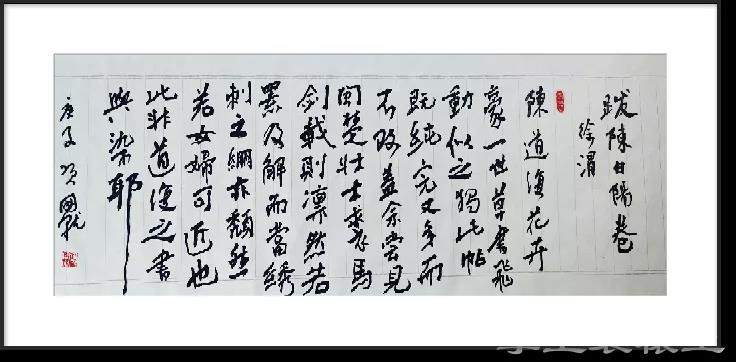 跋陳白陽卷
徐渭
陳道復花卉
豪一世草書飛
動似之獨此帖
既純完又多而
不敗蓋余嘗見
閩楚壯士裘馬
劍戟則凛然若
羆及解而當綉
刺之綳亦頹然
若女婦可近也
此非道復之書
與染耶
庚子